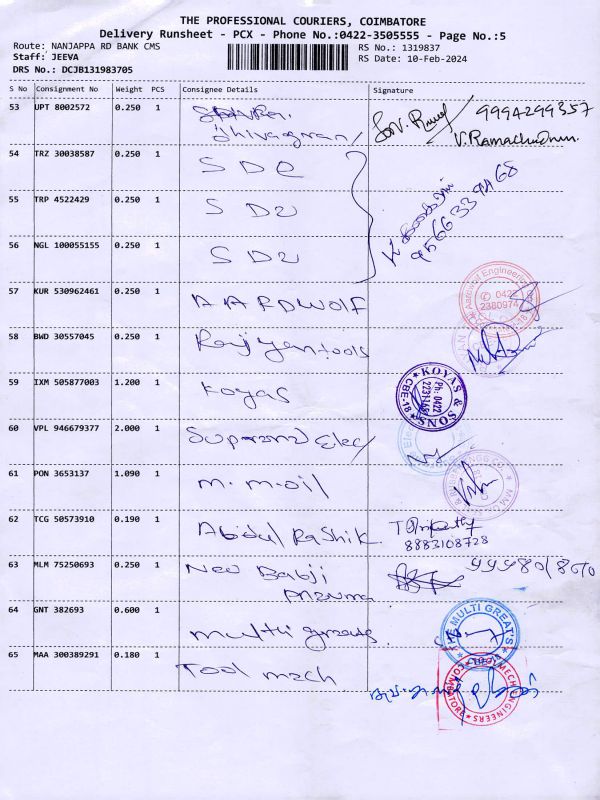 THE PROFESSIONAL COURIERS, COIMBATORE
Delivery Runsheet - PCX - Phone No.:0422-3505555 - Page No.:5
Route: NANJAPPA RD BANK CMS
Staff: JEEVA
DRS No.: DCJB131983705
RS No.: 1319837
RS Date: 10-Feb-2024
S No Consignment No Weight PCS Consignee Details Signature
53 UPT 8002572 0.250 1
9994299357
V. Ramachudnun.
54 TRZ 30038587 0.250 1 SDC
9566339468
55 TRP 4522429 0.250 1 SDU
56 NGL 100055155 0.250 1 SDU
57 KUR 530962461 0.250 1 AARDWOLF
Aardwolf Engineering
0422
2380974
58 BWD 30557045 0.250 1 tools
59 IXM 505877003 1.200 1 Koyas
KOYAS & SONS
Ph: 0422
CBE-18
60 VPL 946679377 2.000 1 Elec
61 PON 3653137 1.090 1 m.m.oil
62 TCG 50573910 0.190 1 Abdul Rashik
8883108728
63 MLM 75250693 0.250 1 New Babji
64 GNT 382693 0.600 1 multi greats
THE MULTI GREAT'S
65 MAA 300389291 0.180 1 Tool mech
TOOLMECH ENGINEERS
COIMBATORE